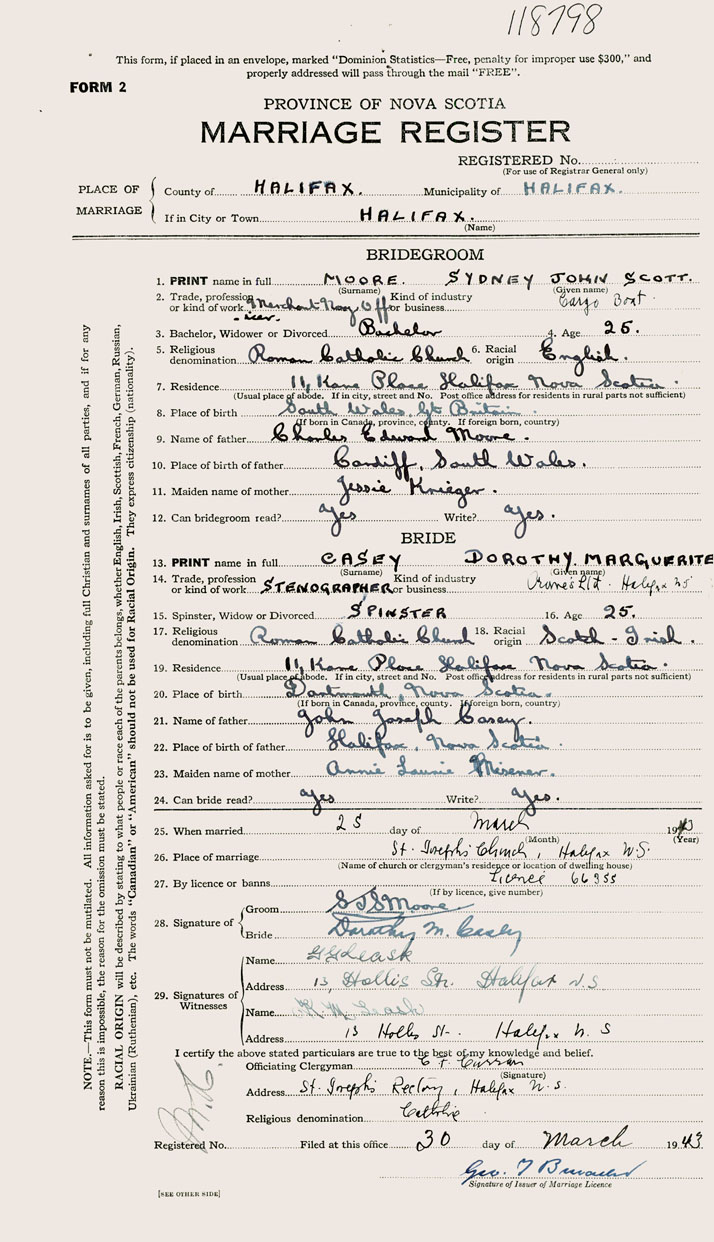 118798
This form, if placed in an envelope, marked "Dominion Statistics—Free, penalty for improper use $300," and
properly addressed will pass through the mail "FREE".
FORM 2
PROVINCE OF NOVA SCOTIA
MARRIAGE REGISTER
REGISTERED No.
(For use of Registrar General only)
PLACE OF MARRIAGE
County of HALIFAX. Municipality of HALIFAX.
If in City or Town HALIFAX.
(Name)
BRIDEGROOM
1. PRINT name in full MOORE. SYDNEY JOHN SCOTT.
(Surname) (Given name)
2. Trade, profession or kind of work Merchant Navy Officer. Kind of industry or business Cargo Boat.
3. Bachelor, Widower or Divorced Bachelor 4. Age 25.
5. Religious denomination Roman Catholic Church 6. Racial origin English.
7. Residence 11, Kane Place Halifax Nova Scotia.
(Usual place of abode. If in city, street and No. Post office address for residents in rural parts not sufficient)
8. Place of birth South Wales, Gt Britain.
(If born in Canada, province, county. If foreign born, country)
9. Name of father Charles Edward Moore.
10. Place of birth of father Cardiff, South Wales.
11. Maiden name of mother Jessie Krieger.
12. Can bridegroom read? Yes Write? Yes.
BRIDE
13. PRINT name in full CASEY DOROTHY. MARGUERITE
(Surname) (Given name)
14. Trade, profession or kind of work STENOGRAPHER Kind of industry or business Ltd. Halifax NS
15. Spinster, Widow or Divorced SPINSTER 16. Age 25.
17. Religious denomination Roman Catholic Church 18. Racial origin Scotch - Irish.
19. Residence 11, Kane Place Halifax Nova Scotia.
(Usual place of abode. If in city, street and No. Post office address for residents in rural parts not sufficient)
20. Place of birth Dartmouth, Nova Scotia.
(If born in Canada, province, county. If foreign born, country)
21. Name of father John Joseph Casey.
22. Place of birth of father Halifax, Nova Scotia.
23. Maiden name of mother Annie Laurie Misener.
24. Can bride read? Yes Write? Yes.
25. When married 25 day of March 1943
(Month) (Year)
26. Place of marriage St. Joseph's Church, Halifax N.S.
(Name of church or clergyman's residence or location of dwelling house)
27. By licence or banns Licence 66355
(If by licence, give number)
28. Signature of
Groom SJSMoore
Bride Dorothy M. Casey
29. Signatures of Witnesses
Name Leask
Address 13, Hollis Str. Halifax N.S.
Name K. M. Leask
Address 13 Hollis St. Halifax N. S
I certify the above stated particulars are true to the best of my knowledge and belief.
Officiating Clergyman C. F. Curran
(Signature)
Address St. Joseph's Rectory, Halifax N.S.
Religious denomination Catholic
Registered No. Filed at this office 30 day of March 1943
Geo.
Signature of Issuer of Marriage Licence
[SEE OTHER SIDE]
NOTE.—This form must not be mutilated. All information asked for is to be given, including full Christian and surnames of all parties, and if for any
reason this is impossible, the reason for the omission must be stated.
RACIAL ORIGIN will be described by stating to what people or race each of the parents belongs, whether English, Irish, Scottish, French, German, Russian,
Ukrainian (Ruthenian), etc. The words "Canadian" or "American" should not be used for Racial Origin. They express citizenship (nationality).